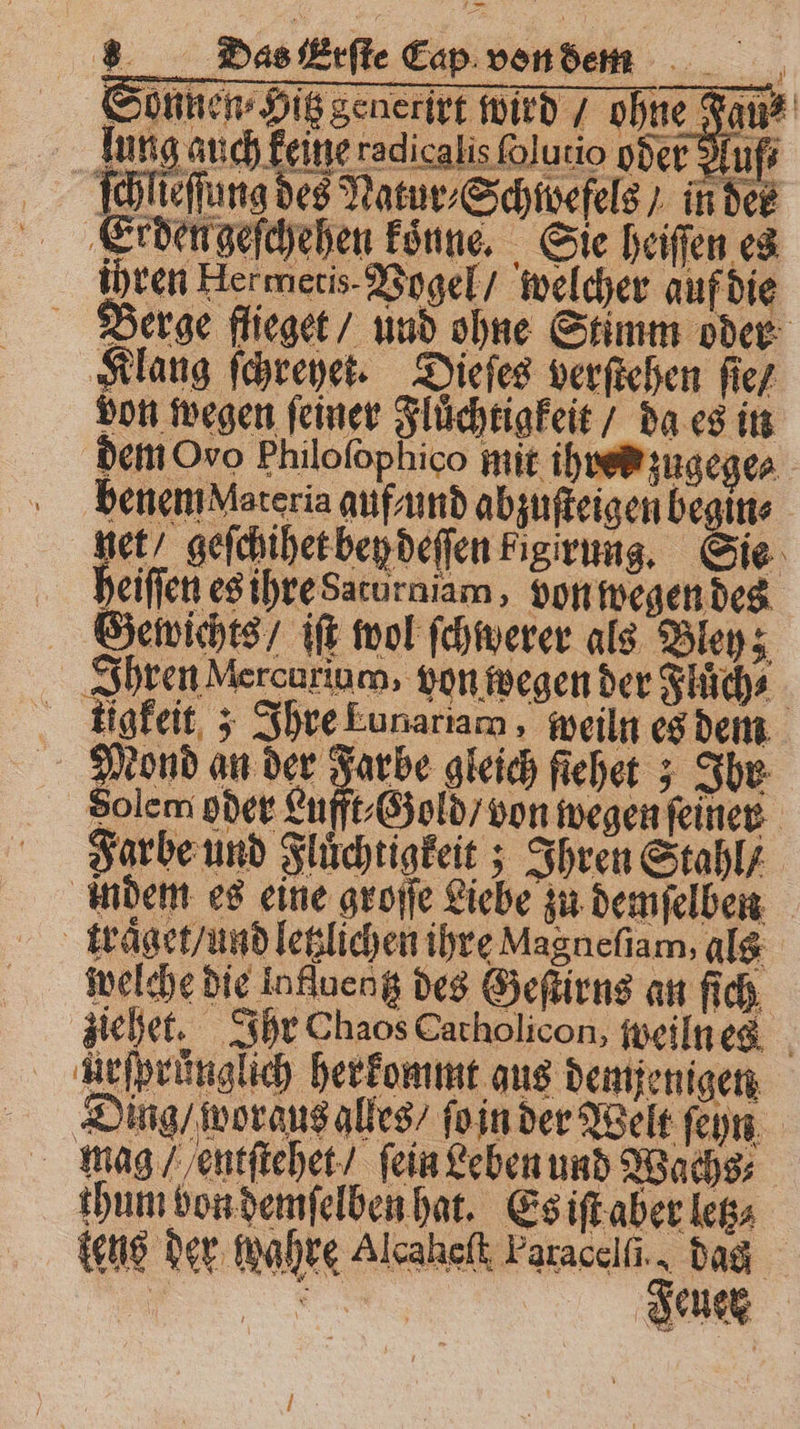 8 Das Erſte Cap. von dem
Sonnen⸗Hitz generirt wird / ohne Fau⸗
lung auch keine radicalis ſolutio oder Auf⸗
ſchlieſſung des Natur⸗Schwefels / in der
Erden geſchehen koͤnne. Sie heiſſen es
ihren Hermetis-Vogel / welcher auf die
Berge flieget / und ohne Stimm oder
Klang ſchreyet. Dieſes verſtehen ſie /
von wegen ſeiner Fluͤchtigkeit / da es in
dem Ovo Philoſophico mit zugege⸗
benem Materia auf⸗und abzuſteigen begin⸗
net / geſchihet bey deſſen Figirung. Sie
heiſſen es ihre Saturniam, von wegen des
Gewichts / iſt wol ſchwerer als Bley;
Ihren Mercurium, von wegen der Fluͤch⸗
tigkeit ; Ihre Lunariam, weiln es dem
Mond an der Farbe gleich ſiehet ; Ihr
Solem oder Lufft⸗Gold / von wegen ſeiner
Farbe und Fluͤchtigkeit ; Ihren Stahl /
indem es eine groſſe Liebe zu demſelben
traͤget / und letzlichen ihre Magneſiam, als
welche die Influentz des Geſtirns an ſich
ziehet. Ihr Chaos Catholicon, weiln es
urſpruͤnglich herkommt aus demjenigen
Ding / woraus alles / ſo in der Welt ſeyn
mag / entſtehet / ſein Leben und Wachs⸗
thum von demſelben hat. Es iſt aber letz⸗
tens der wahre Alcaheſt Paracelſi, das
Feuer